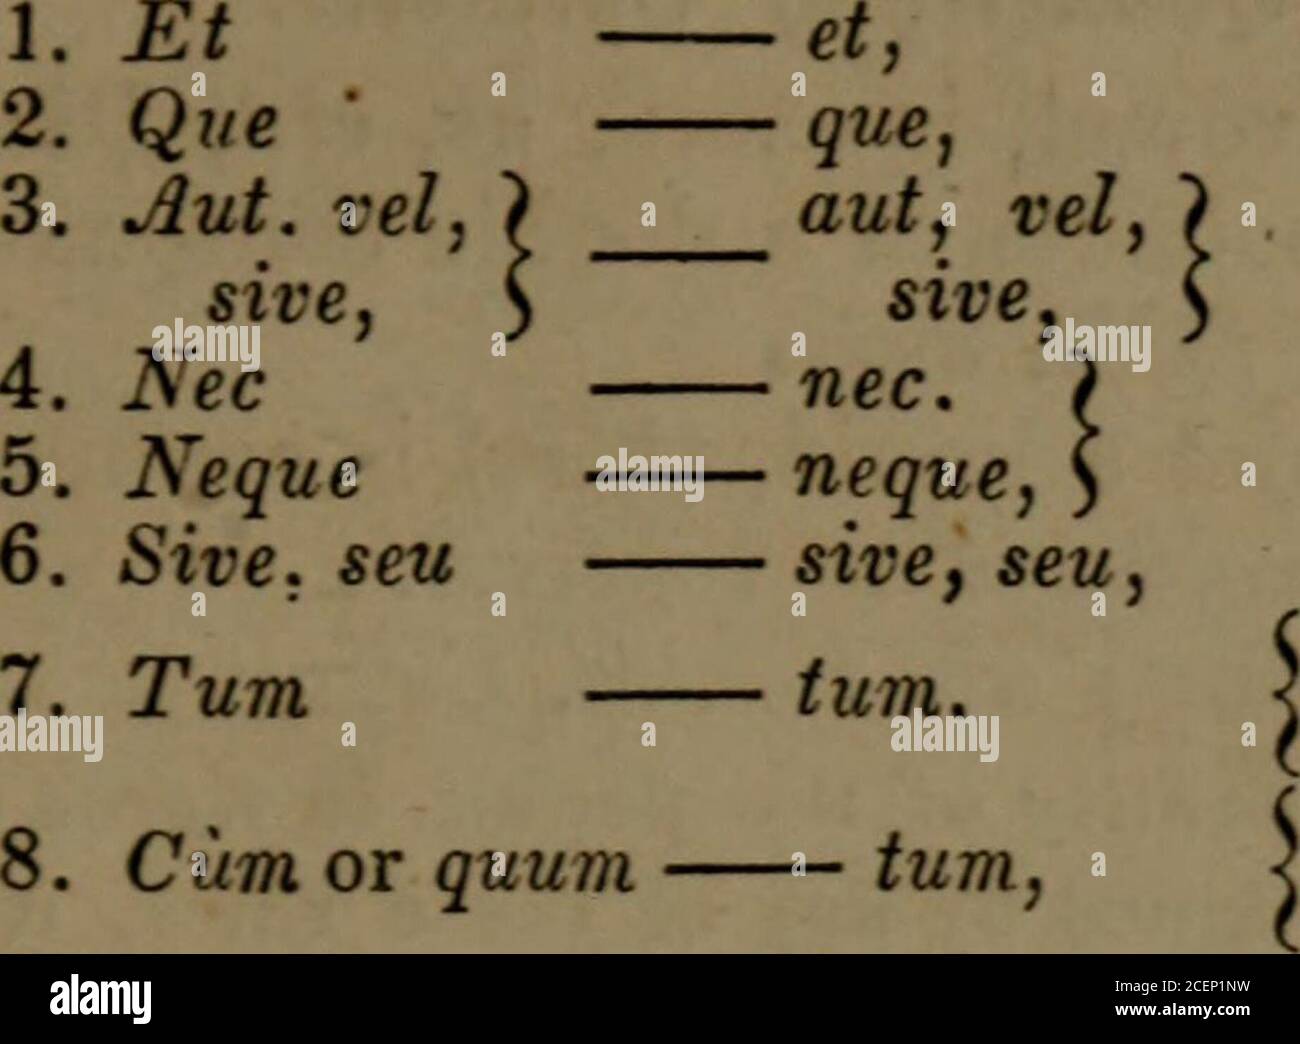 1. Et —— et,
2. Que —— que,
3. Aut. vel, } —— aut, vel, }
sive, sive,
4. Nec —— nec. }
5. Neque —— neque,
6. Sive, seu —— sive, seu,
7. Tum —— tum. {
8. Cùm or quum —— tum, {
a alamy
alamy
Image ID: 2CEP1NW
www.alamy.com